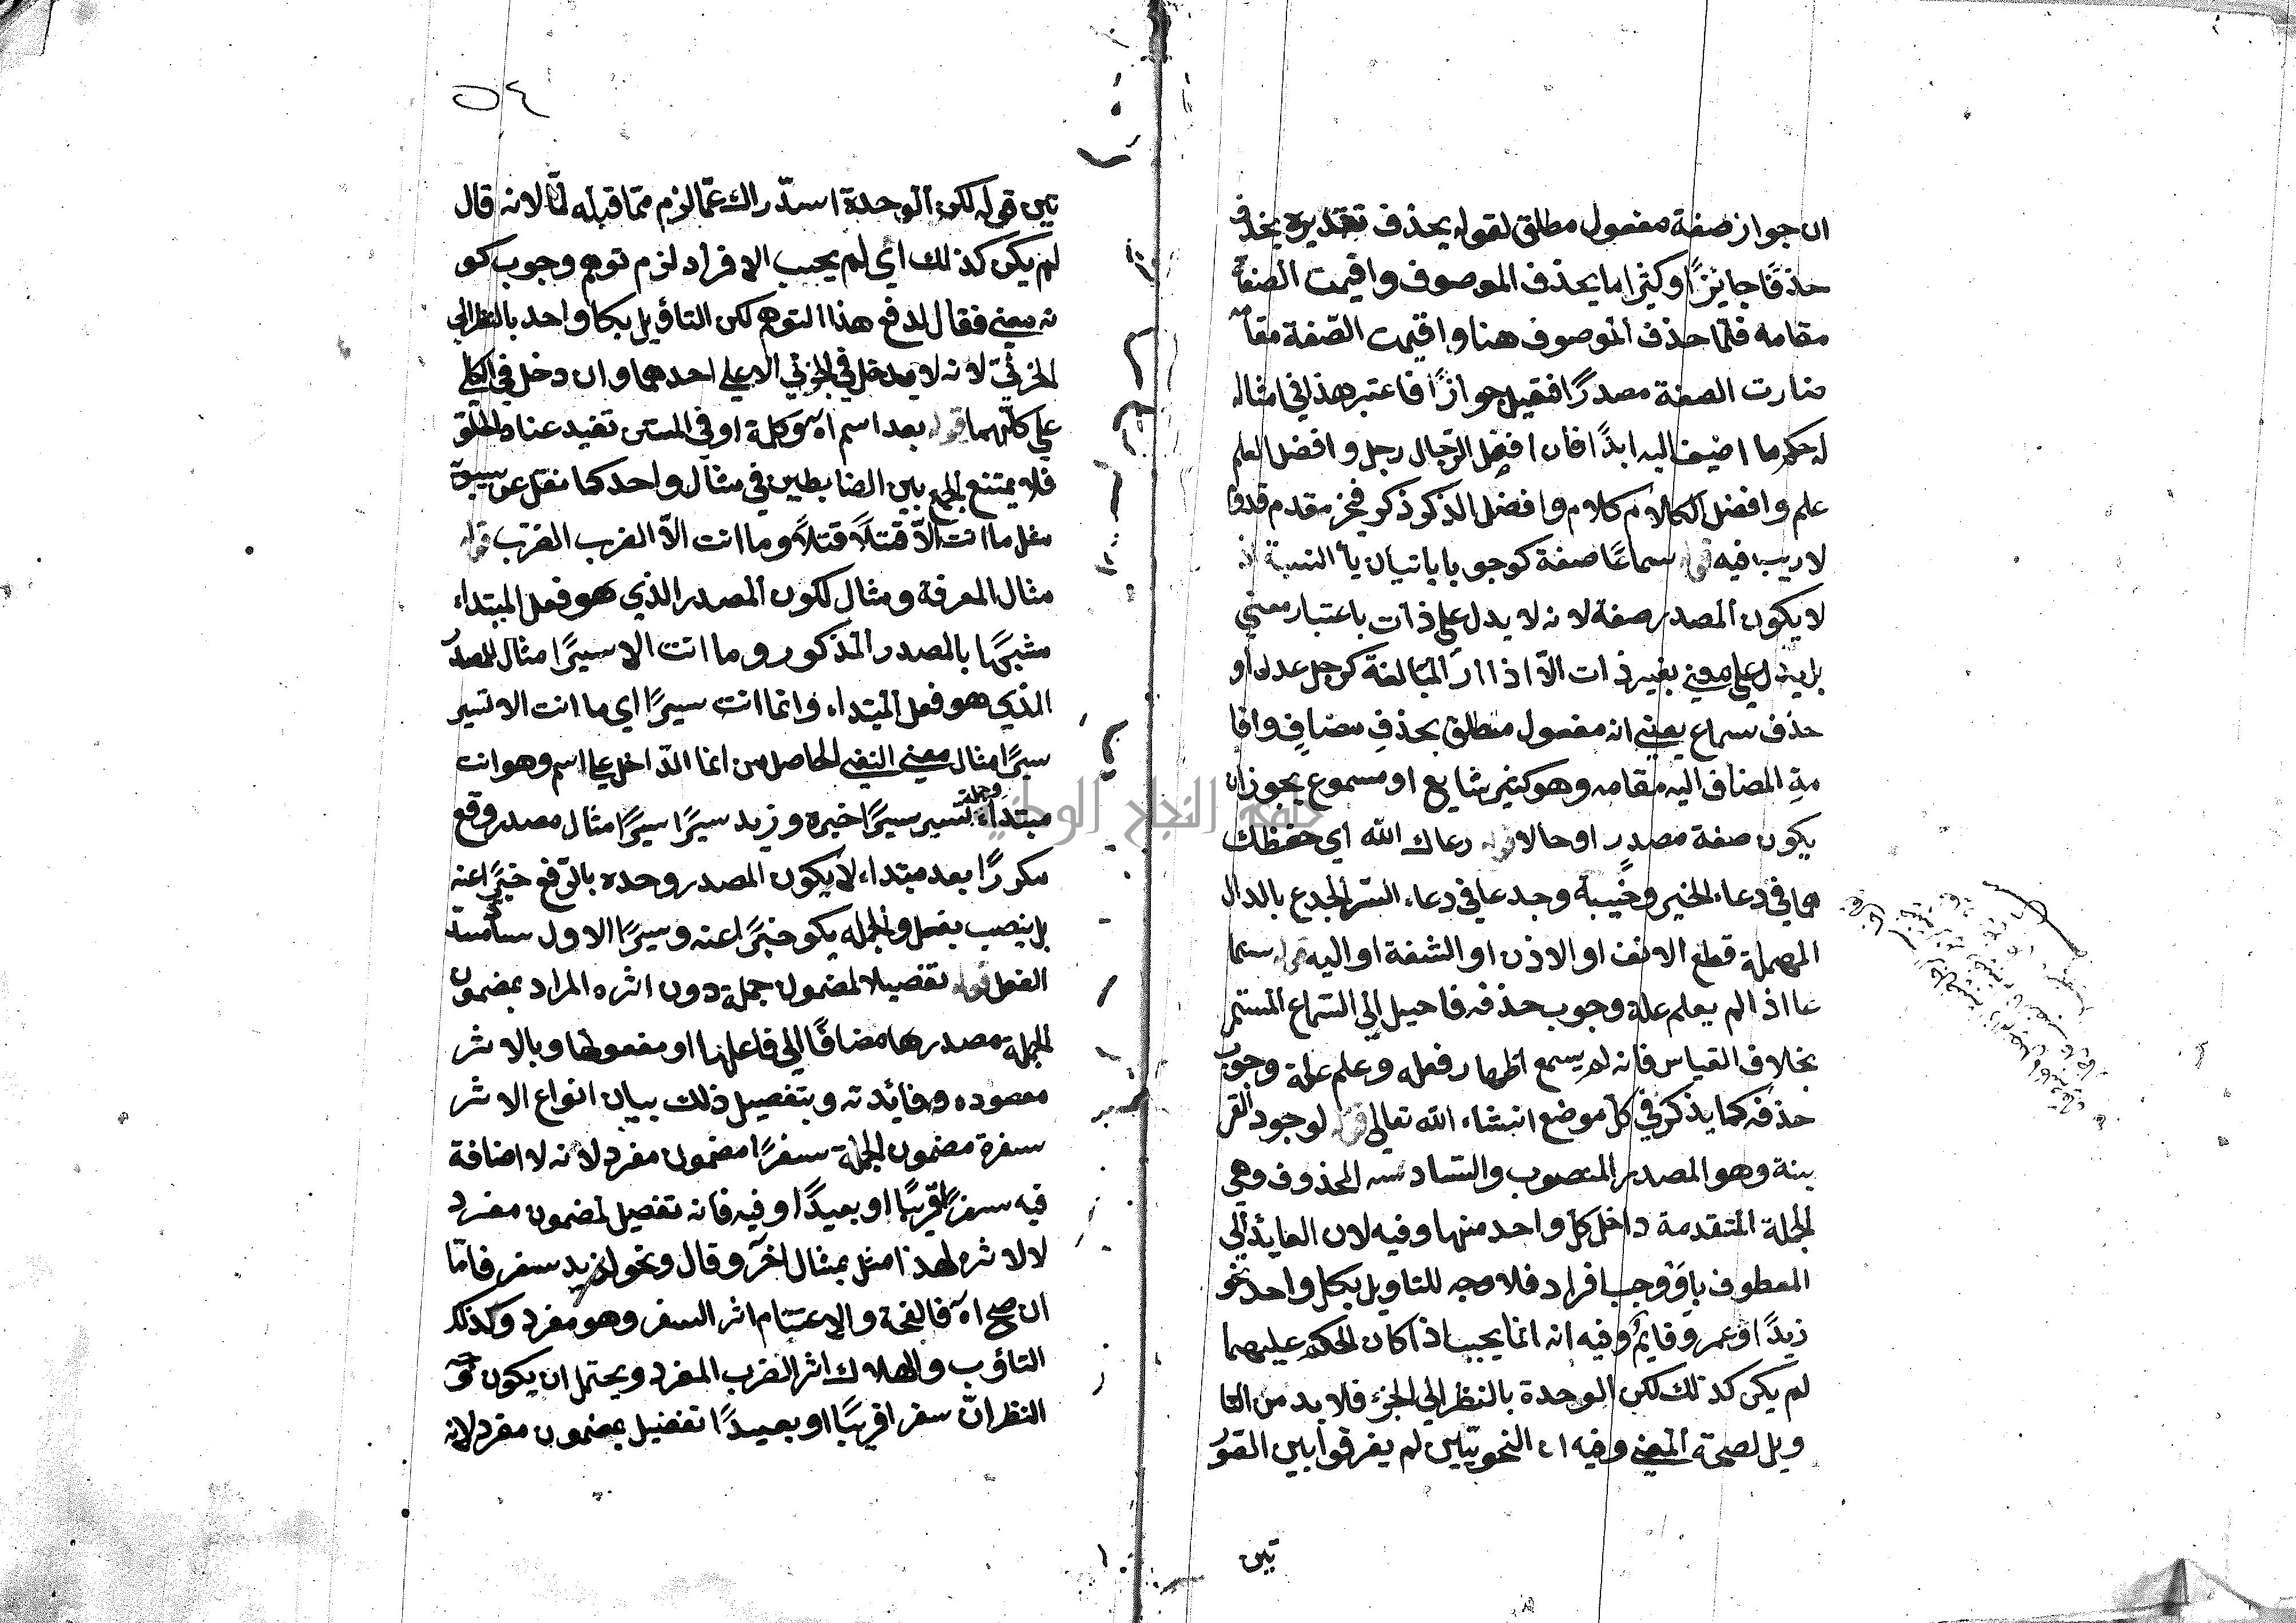 ان جواز صفة مفعول مطلق لقوله يحذف تقديره يحذف
حذفًا جايزًا وكثيرا ما يحذف الموصوف واقيمت الصفة
مقامه فلمّا حذف الموصوف هنا واقيمت الصّفة مقامه
صارت الصفة مصدرًا فقيل جوازًا فاعتبر هذا في امثاله
له حكم ما اضيف اليه ابدًا فان افضل الرّجال رجل وافضل العلم
علم وافضل الكلام كلام وافضل الذكر ذكر مقدم
لا ريب فيه قوله سماعًا صفة كوجوبا باتيان يا النسبة اذ
لا يكون المصدر صفة لانه لا يدل على ذات باعتبار معنى
بل يدل على معنى بغير ذات الّا اذا المبالغة كرجل عدل او
حذف سماع يعنى انه مفعول مطلق بحذف مضاف واقا
مة المضاف اليه مقامه وهو كثير شايع او مسموع يجوز ان
يكون صفة مصدر او حالا قوله رعاك الله اي حفظك
هما في دعاء الخير وخيبة وجدعا في دعاء الشر الجدع بالدال
المهملة قطع الانف او الاذن او الشفة او اليد قوله سما
عا اذا لم يعلم علة وجوب حذفه فاحيل الى السّماع المستمر
بخلاف القياس فانه لم يسمع اظهار فعله وعلم علة وجوب
حذفه كما يذكر في كلّ موضع انشاء الله تعالى قوله لوجود القر
ينة وهو المصدر المنصوب والسّاد المحذوف وهي
الجملة المتقدمة داخل كلّ واحد منها وفيه لان العايد الى
المعطوف باو وجب افراد فلا وجه للتاويل بكل واحد نحو
زيدًا او عمرو قايم وفيه انه انما يجب اذا كان الحكم عليهما
لم يكن كذلك لكن الوحدة بالنظر الى الجزء فلا بد من التا
ويل لصحة المعنى وفيه ان النحويّين لم يفرقوا بين الصو
تين
٥٤
تين قوله لكن الوحدة استدراك عمّا لزم ممّا قبله لانه قال
لم يكن كذلك اي لم يجب الافراد لزم توهم وجوب كو
نه معنى فقال لدفع هذا التوهم لكن التاؤيل بكل واحد بالنظر الى
الجزئي لانه لا يدخل في الجزئي الا على احدهما وان دخل في الكلي
على كلّيهما قوله بعد اسم اه وكلمة او في المتن تفيد عناد الخلو
فلا يمتنع الجمع بين الضابطين في مثال واحد كما نقل عن سيبويه
مثل ما انت الّا قتلًا قتلًا وما انت الّا الضرب الضرب قوله
مثال المعرفة ومثال لكون المصدر الذي هو فعل المبتداء
مشبهًا بالمصدر المذكور وما انت الا سيرًا مثال للمصدر
الذي هو فعل المبتداء وانما انت سيرًا اي ما انت الا تسير
سيرًا مثال معنى النفي الحاصل من انما الدّاخل على اسم وهو انت
مبتداء وجملة تسير سيرًا خبره وزيد سيرًا سيرًا مثال مصدر وقع
مكررًا بعد مبتداء لا يكون المصدر وحده بالرفع خبرًا عنه
بل ينصب بفعل والجملة يكو خبرًا عنه وسيرًا الاول ساد مسدّ
الفعل قوله تفصيلا لمضمون جملة دون اثره المراد بمضمون
الجملة مصدرها مضافًا الى فاعلها او مفعولها وبالاثر
مقصوده وفائدته وبتفصيل ذلك بيان انواع الاثر
سفره مضمون الجملة سفرًا مضمون مفرد لانه لا اضافة
فيه سفرًا قريبًا او بعيدًا وفيه فانه تفصيل لمضمون مفرد
لا لاثره لهذا مثل بمثال اخر وقال ونحو زيد سفر فامّا
ان صح اه فالصحة والاغتنام اثر السفر وهو مفرد وكذلك
التاؤب والهلاك اثر الضرب المفرد ويحتمل ان يكون وجه
النظر انّ سفرا قريبًا او بعيدًا تفصيل بمضمون مفرد لانه